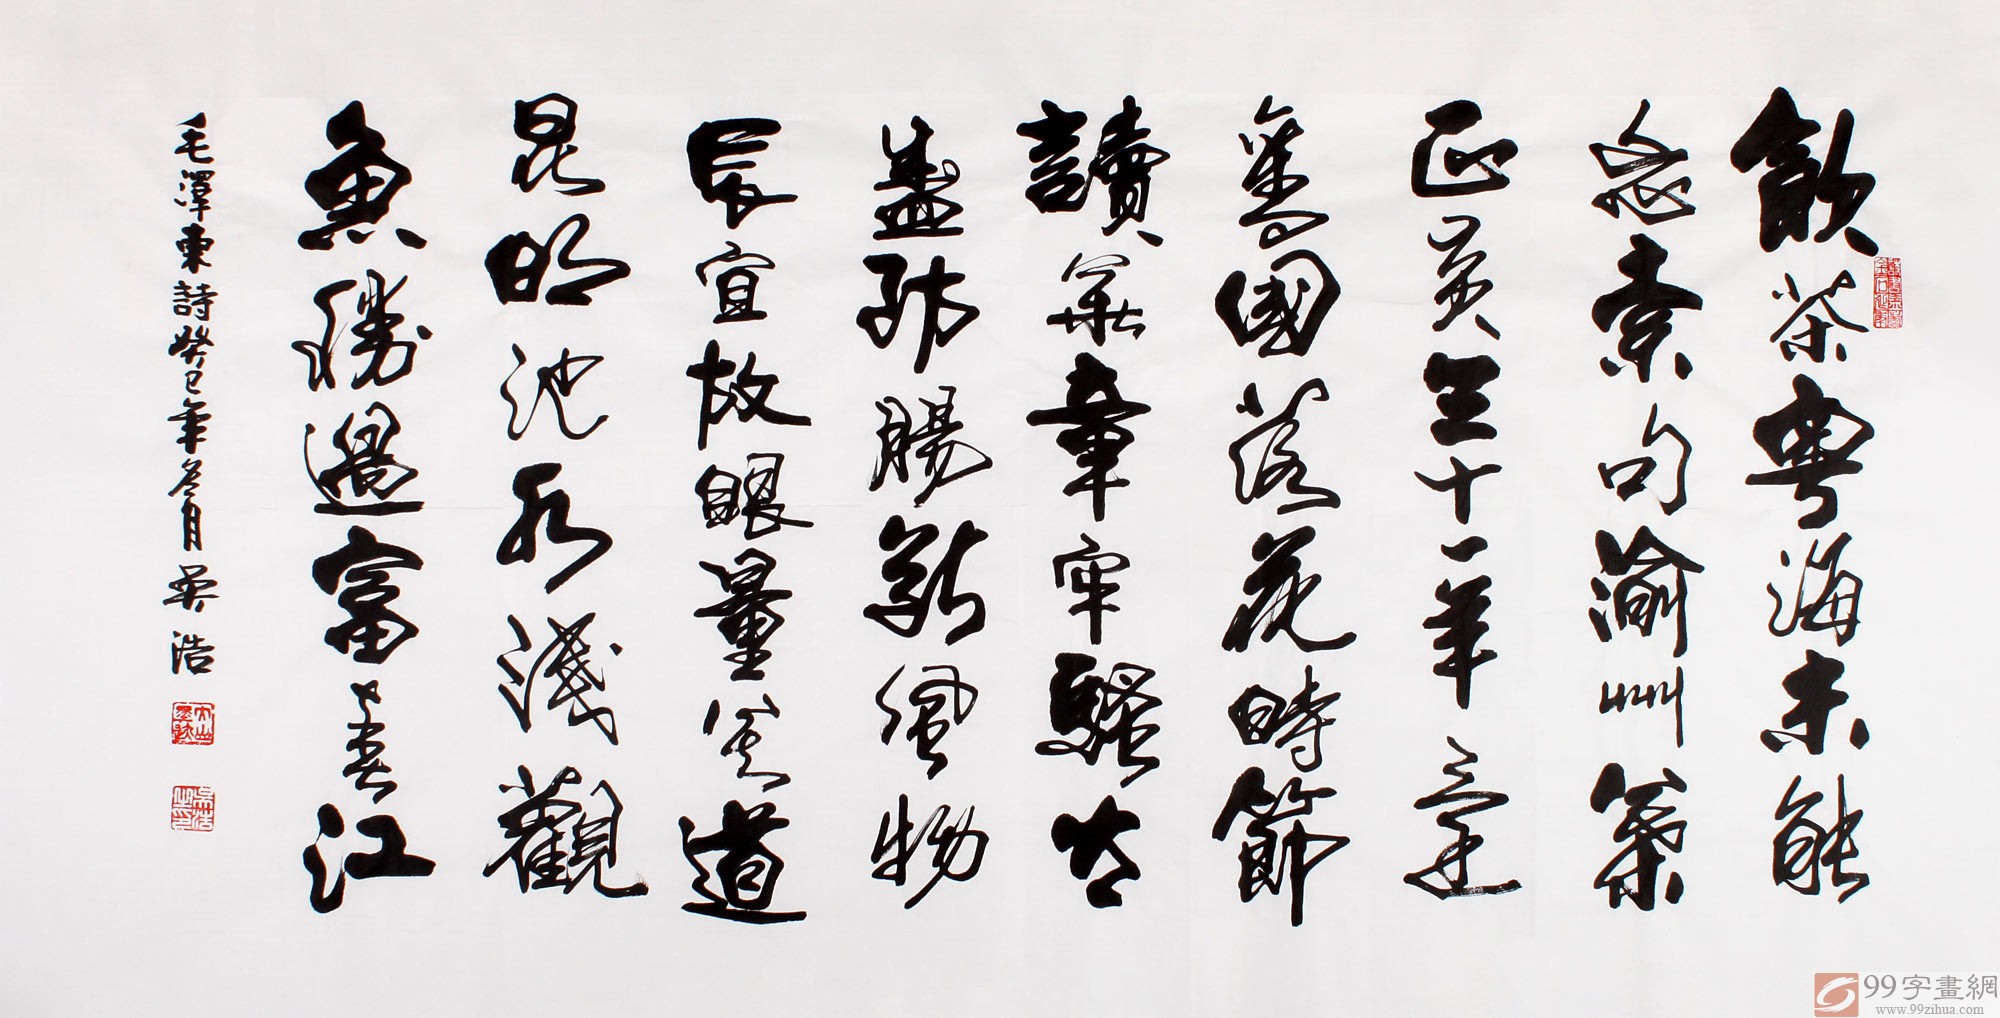 飲茶粤海未能
忘索句渝州葉
正黄三十一年還
舊國落花時節
讀華章牢騷太
盛防腸斷風物
長宜放眼量莫道
昆明池水淺觀
魚勝過富春江
毛澤東詩癸巳年冬月吴浩
99字畫網
www.99zihua.com